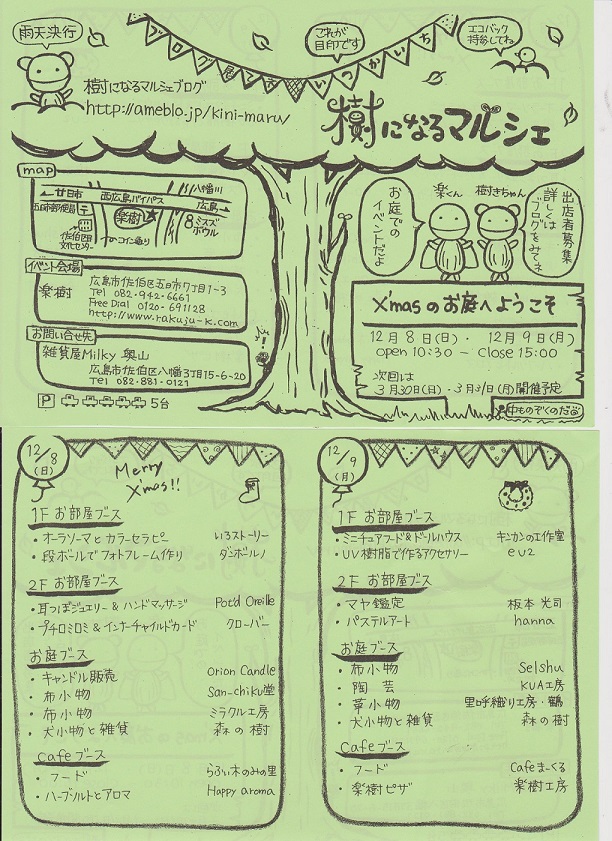 雨天決行
ブログ見てネ
いつかいち
これが
目印です
エコバック
持参してね
樹になるマルシェブログ
http://ameblo.jp/kini-maru/
樹になるマルシェ
map
廿日市
西広島バイパス
八幡川
広島
五日市郵便局
楽樹
ミスズ
ボウル
佐伯区民
文化センター
コイン通り
イベント会場
楽樹
広島市佐伯区五日市7丁目1-3
Tel 082-942-6661
Free Dial 0120-691128
http://www.rakuju-k.com
お問い合せ先
雑貨屋Milky 奥山
広島市佐伯区八幡3丁目15-6-20
Tel 082-881-0121
P 5台
お庭での
イベントだよ
楽くん
樹きちゃん
出店者募集
詳しくは
ブログをみてネ
X'masのお庭へようこそ
12月8日(日)・12月9日(月)
open 10:30 − Close 15:00
次回は
3月30日(日)・3月31日(月)開催予定
中ものぞくのだぁ
12/8
(日)
Merry
X'mas!!
1F お部屋ブース
・オーラソーマとカラーセラピー いろストーリー
・段ボールでフォトフレーム作り ダンボルノ
2F お部屋ブース
・耳つぼジュエリー&ハンドマッサージ Pot'd Oreille
・プチロミロミ&インナーチャイルドカード クローバー
お庭ブース
・キャンドル販売 Orion Candle
・布小物 San-chiku堂
・布小物 ミラクル工房
・犬小物と雑貨 森の樹
Cafeブース
・フード らふぃ木のみの里
・ハーブソルトとアロマ Happy aroma
12/9
(月)
1F お部屋ブース
・ミニチュアフード&ドールハウス キンカンの工作室
・UV樹脂で作るアクセサリー eu2
2F お部屋ブース
・マヤ鑑定 板本光司
・パステルアート hanna
お庭ブース
・布小物 Selshu
・陶芸 KUA工房
・革小物 里呼織り工房・鶴
・犬小物と雑貨 森の樹
Cafeブース
・フード Cafeまーくる
・楽樹ピザ 楽樹工房